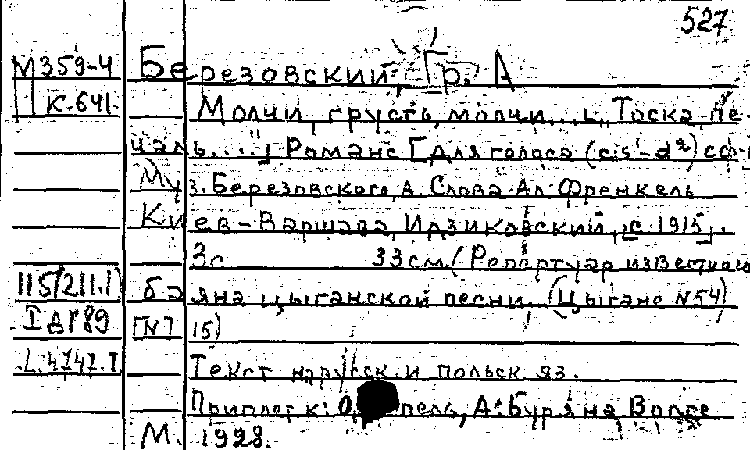 527
М359-4 Березовский, Гр. А
К.641. Молчи, грусть, молчи... [„Тоска, пе-
чаль...."] Романс [Для голоса (cis¹-d²) с ф-п
Муз. Березовского, А. Слова Ал. Френкель
Киев-Варшава, Идзиковский, [с. 1915].
3с 33см. (Репертуар известного
115/211.1) баяна цыганской песни. (Цыгане №54)
I д 189 [№] 15)
L.4747.I Текст на русск. и польск. яз.
Приплет к: А. Буря на Волге
М. 1928.